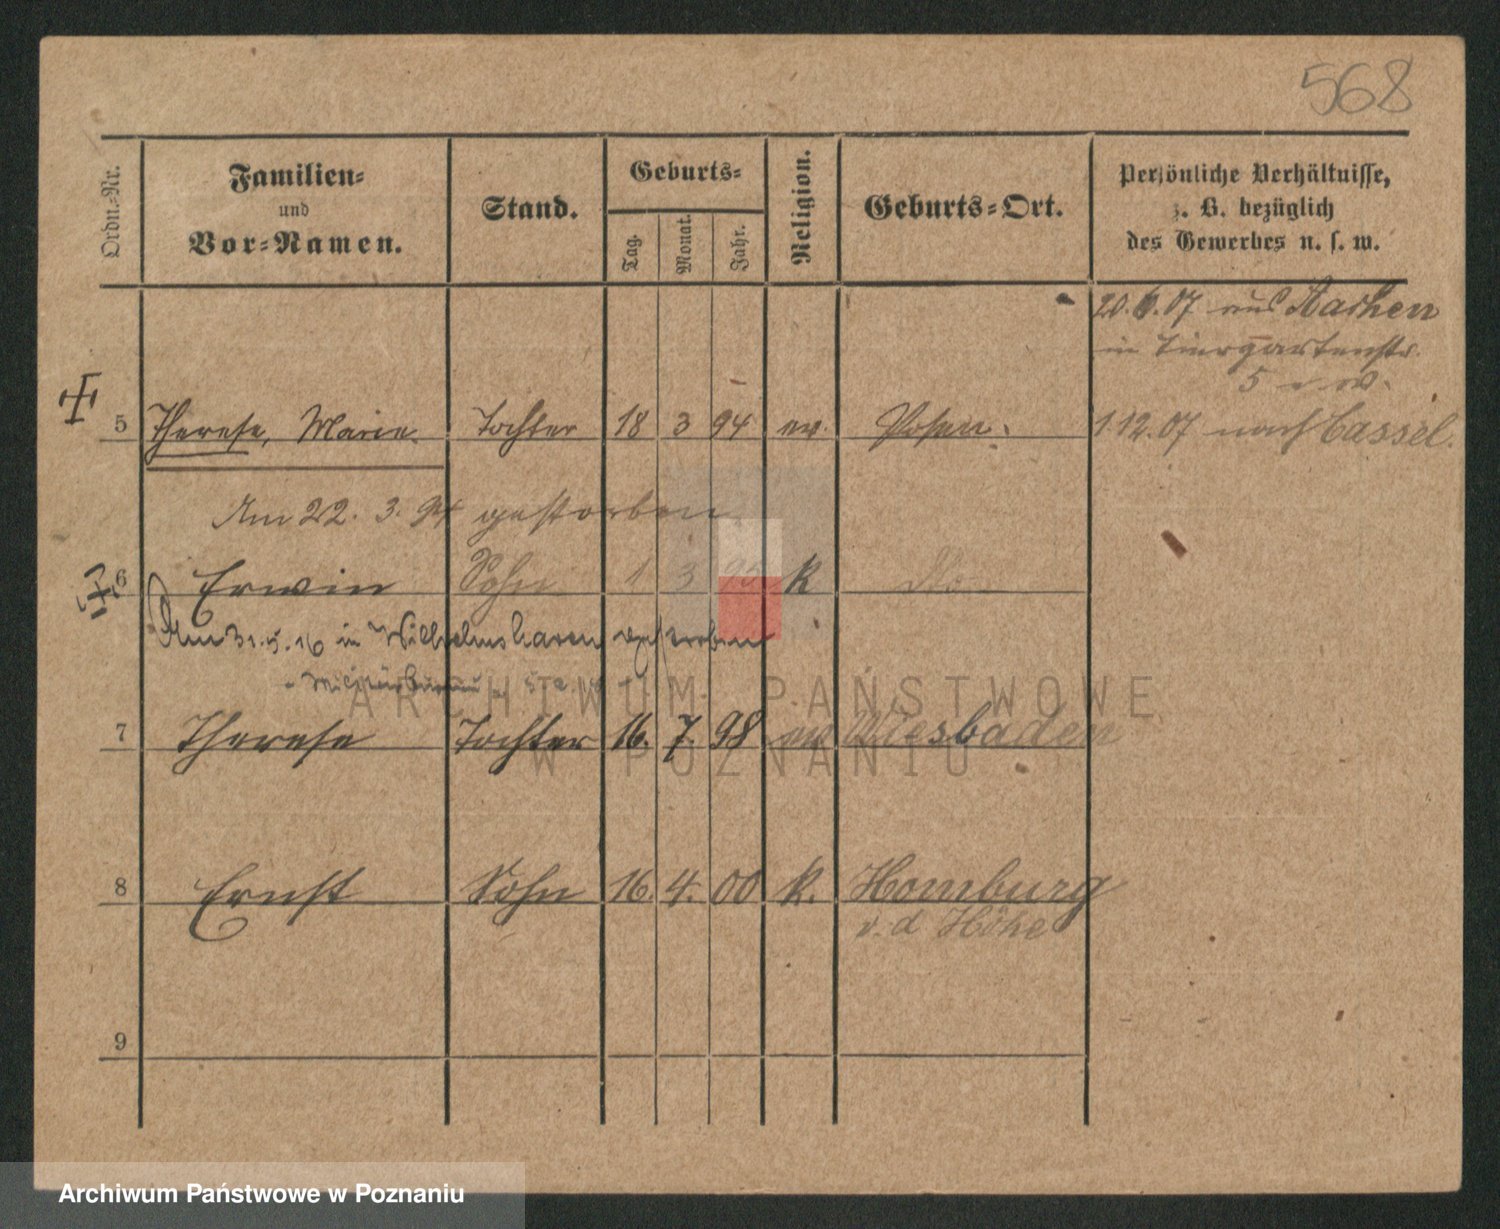 568
Ordn.-Nr.
Familien-
und
Vor-Namen.
Stand.
Geburts-
Tag.
Monat.
Jahr.
Religion.
Geburts-Ort.
Persönliche Verhältnisse,
z. B. bezüglich
des Gewerbes u. s. w.
20.6.07 aus Aachen
in Tiergartenstr.
5
5 Therese, Marie. Tochter 18 3 94 ev. Posen. 1.12.07 nach Cassel.
Am 22. 3. 94 gestorben
6 Erwin Sohn 1 3 95 k do
Am 31.5.16 in Wilhelmshaven gestorben
7 Therese Tochter 16. 7. 98 ev Wiesbaden
8 Ernst Sohn 16. 4. 00 k. Homburg
v. d Höhe
9
ARCHIWUM PAŃSTWOWE
W POZNANIU
Archiwum Państwowe w Poznaniu